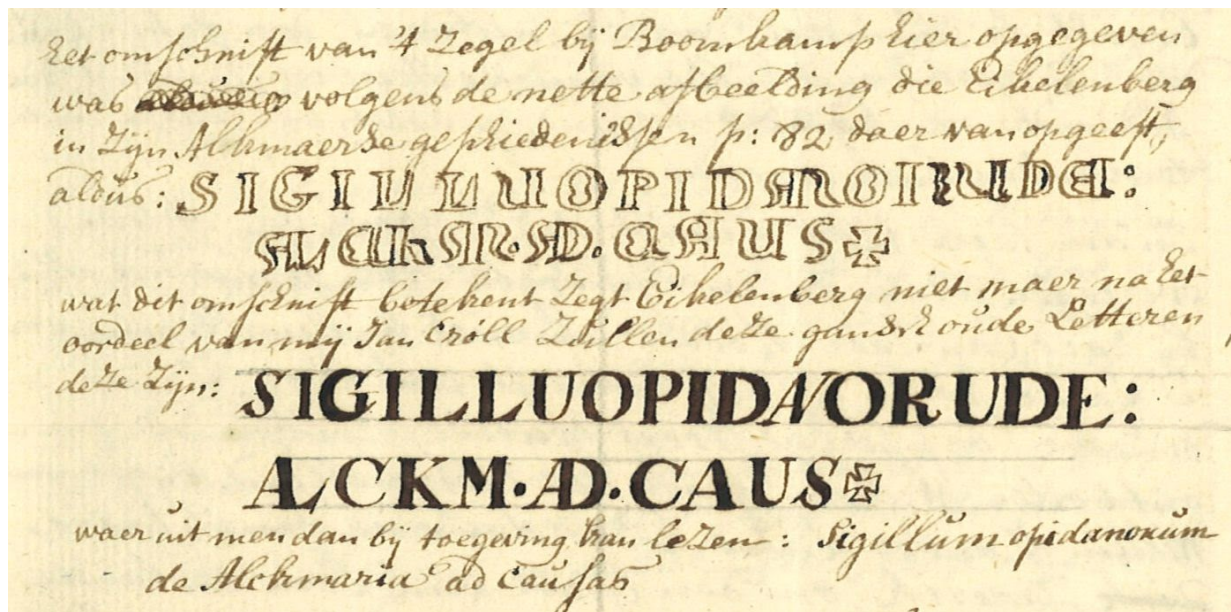 het omschrift van 't Zegel bij Boomkamp hier opgegeven
was volgens de nette afbeelding die Eikelenberg
in Zijn Alkmaerse geschiedenissen p: 82, daer van opgeeft,
aldus: SIGILLUOPIDANORUDE:
ALCKM·AD·CAUS✠
wat dit omschrift betekent Zegt Eikelenberg niet maer na het
oordeel van mij Jan Croll Zullen deze gansch oude Letteren
deze Zijn: SIGILLUOPIDANORUDE:
ALCKM·AD·CAUS✠
waer uit men dan bij toegeving kan lezen: Sigillum opidanorum
de Alckmaria ad Causas